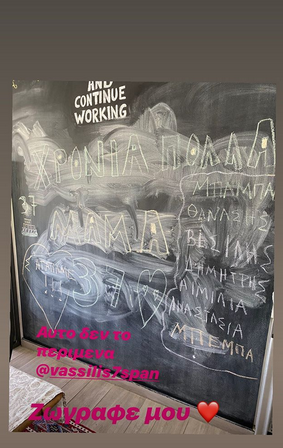 AND
CONTINUE
WORKING
ΧΡΟΝΙΑ ΠΟΛΛΑ
ΜΑΜΑ
37
37
ΜΠΑΜΠΑ
ΘΑΝΑΣΗΣ
ΒΑΣΙΛΗΣ
ΔΗΜΗΤΡΗΣ
ΑΙΜΙΛΙΑ
ΑΝΑΣΤΑΣΙΑ
ΜΠΕΜΠΑ
Αυτο δεν το
περιμενα
@vassilis7span
Ζωγραφε μου ❤️